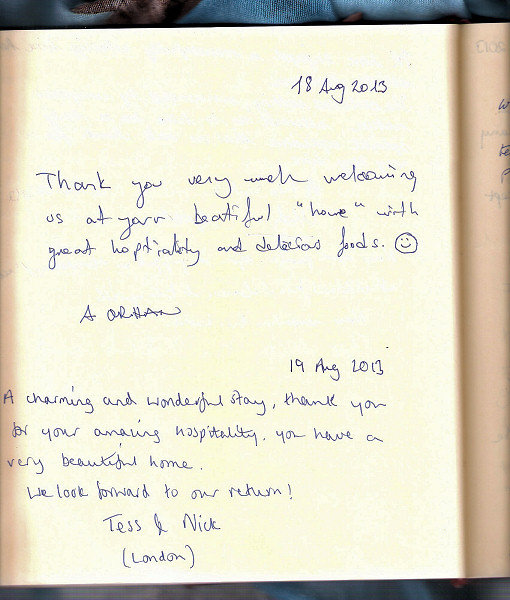 18 Aug 2013
Thank you very much welcoming
us at your beatiful "home" with
great hoptiality and delecias foods. ☺
A ORHAN
19 Aug 2013
A charming and wonderful stay, thank you
for your amazing hospitality. you have a
very beautiful home.
We look forward to our return!
Tess & Nick
(London)